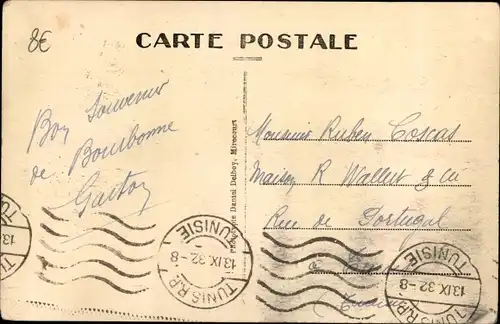 8€
CARTE POSTALE
Bon Souvenir
de Bourbonne
Gaston
Daniel Delboy, Mirecourt
Monsieur Ruben Coscas
Maison R Wallut & cie
Rue de Portugal
TUNIS R.P.
TUNISIE
13 IX 32 -8
TUNIS R.P.
TUNISIE
13 IX 32 -8